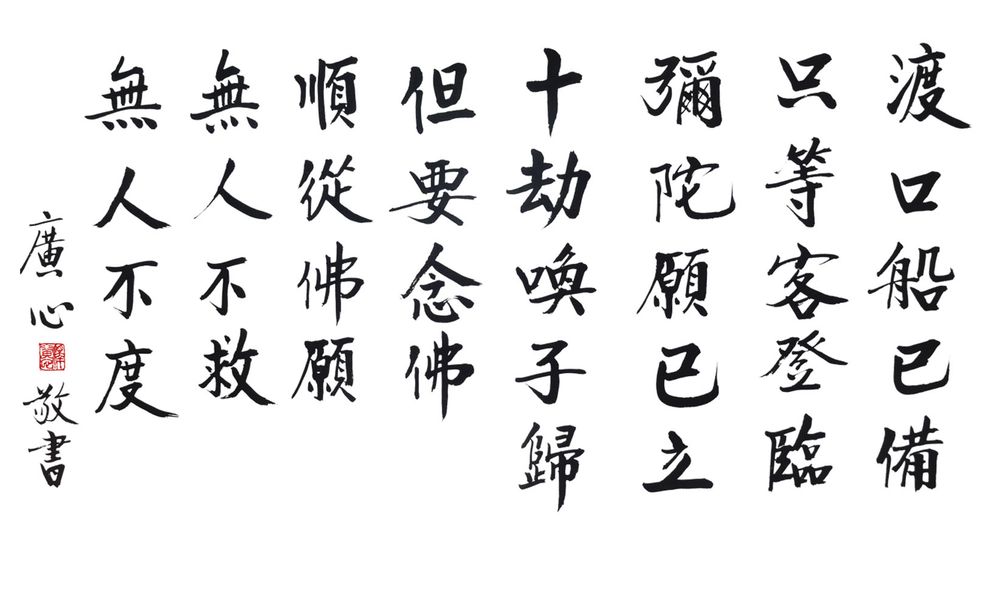 渡口船已備
只等客登臨
彌陀願已立
十劫喚子歸
但要念佛
順從佛願
無人不救
無人不度
廣心敬書